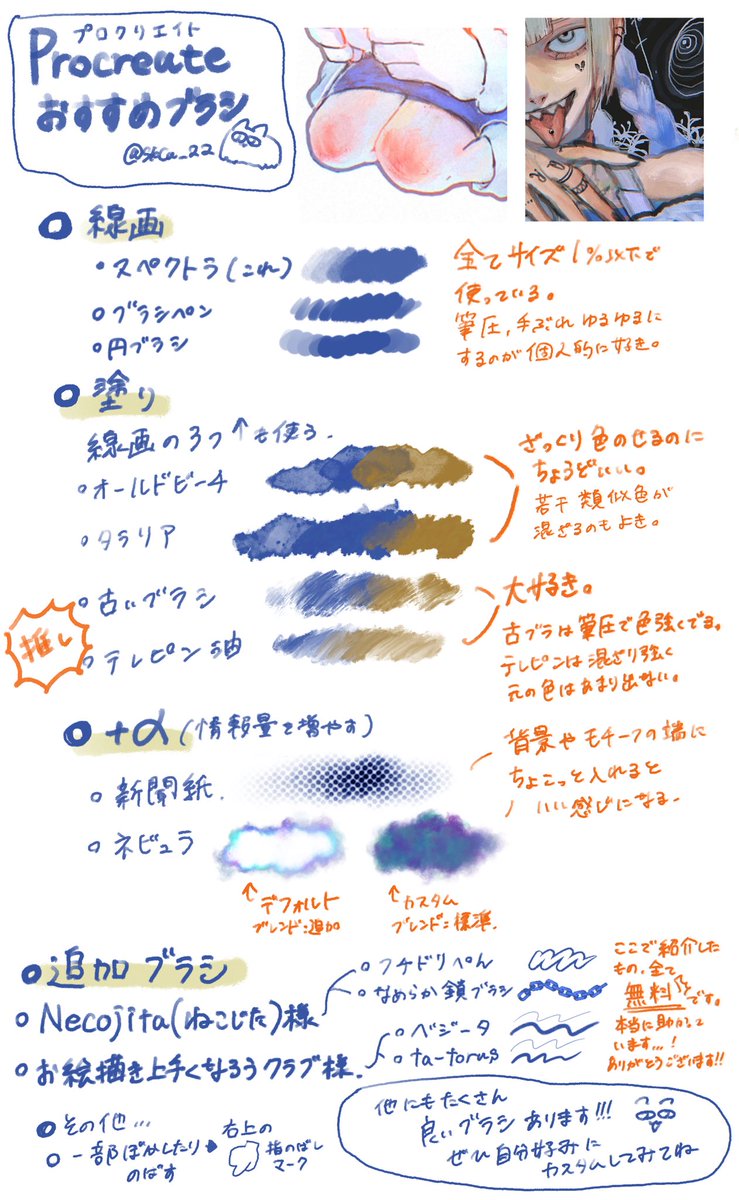 プロクリエイト
Procreate
おすすめブラシ
線画
・スペクトラ(これ)
ブラシペン
円ブラシ
全てサイズ1%以下で
使っている。
筆圧,手ぶれゆるゆるに
するのが個人的に好き。
塗り
線画の3つ↑も使う.
オールドビーチ
タラリア
ざっくり色のせるのに
ちょうどいい。
若干類似色が
混ざるのもよき。
推し
古いブラシ
テレピン油
大好き。
古ブラは筆圧で色強くでる。
テレピンは混ざり強く
元の色はあまり出ない。
+α(情報量を増やす)
新聞紙.
ネビュラ
背景やモチーフの端に
ちょこっと入れると
いい感じになる-
↑デフォルト
ブレンド:追加
↑カスタム
ブレンド:標準.
追加ブラシ
Necojita(ねこじた)様
フチドリぺん
なめらか鎖ブラシ
お絵描き上手くなろうクラブ様.
ベジータ
ta-torus
ここで紹介した
もの,全て
無料です。
本当に助かって
います...!
ありがとうございます!!
その他...
一部ぼかしたり
のばす
右上の
指のばし
マーク
他にもたくさん
良いブラシあります!!!
ぜひ自分好みに
カスタムしてみてね